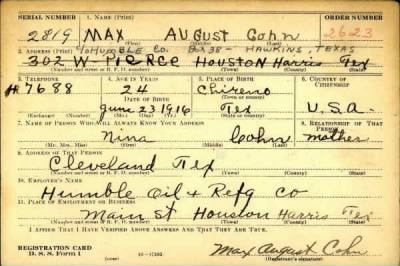 SERIAL NUMBER 1. NAME (Print) ORDER NUMBER
2819 MAX AUGUST Cohn 2623
(First) (Middle) (Last)
2. ADDRESS (Print) % HUMBLE Co. Bx 38 - HAWKINS, TEXAS
302 W-PIERCE HOUSTON Harris Tex
(Number and street or R. F. D. number) (Town) (County) (State)
3. TELEPHONE 4. AGE IN YEARS 5. PLACE OF BIRTH 6. COUNTRY OF CITIZENSHIP
H 7688 24 Chireno
DATE OF BIRTH (Town or county)
June 23 1916 Tex U.S.A.
(Exchange) (Number) (Mo.) (Day) (Yr.) (State or country)
7. NAME OF PERSON WHO WILL ALWAYS KNOW YOUR ADDRESS 8. RELATIONSHIP OF THAT PERSON
Nina Cohn mother
(Mr., Mrs., Miss) (First) (Middle) (Last)
9. ADDRESS OF THAT PERSON
Cleveland Tex
(Number and street or R. F. D. number) (Town) (County) (State)
10. EMPLOYER'S NAME
Humble Oil & Refg Co
11. PLACE OF EMPLOYMENT OR BUSINESS
Main St Houston Harris Tex
(Number and street or R. F. D. number) (Town) (County) (State)
I AFFIRM THAT I HAVE VERIFIED ABOVE ANSWERS AND THAT THEY ARE TRUE.
REGISTRATION CARD
D. S. S. Form 1 16-17105 Max August Cohn
(Registrant's signature)